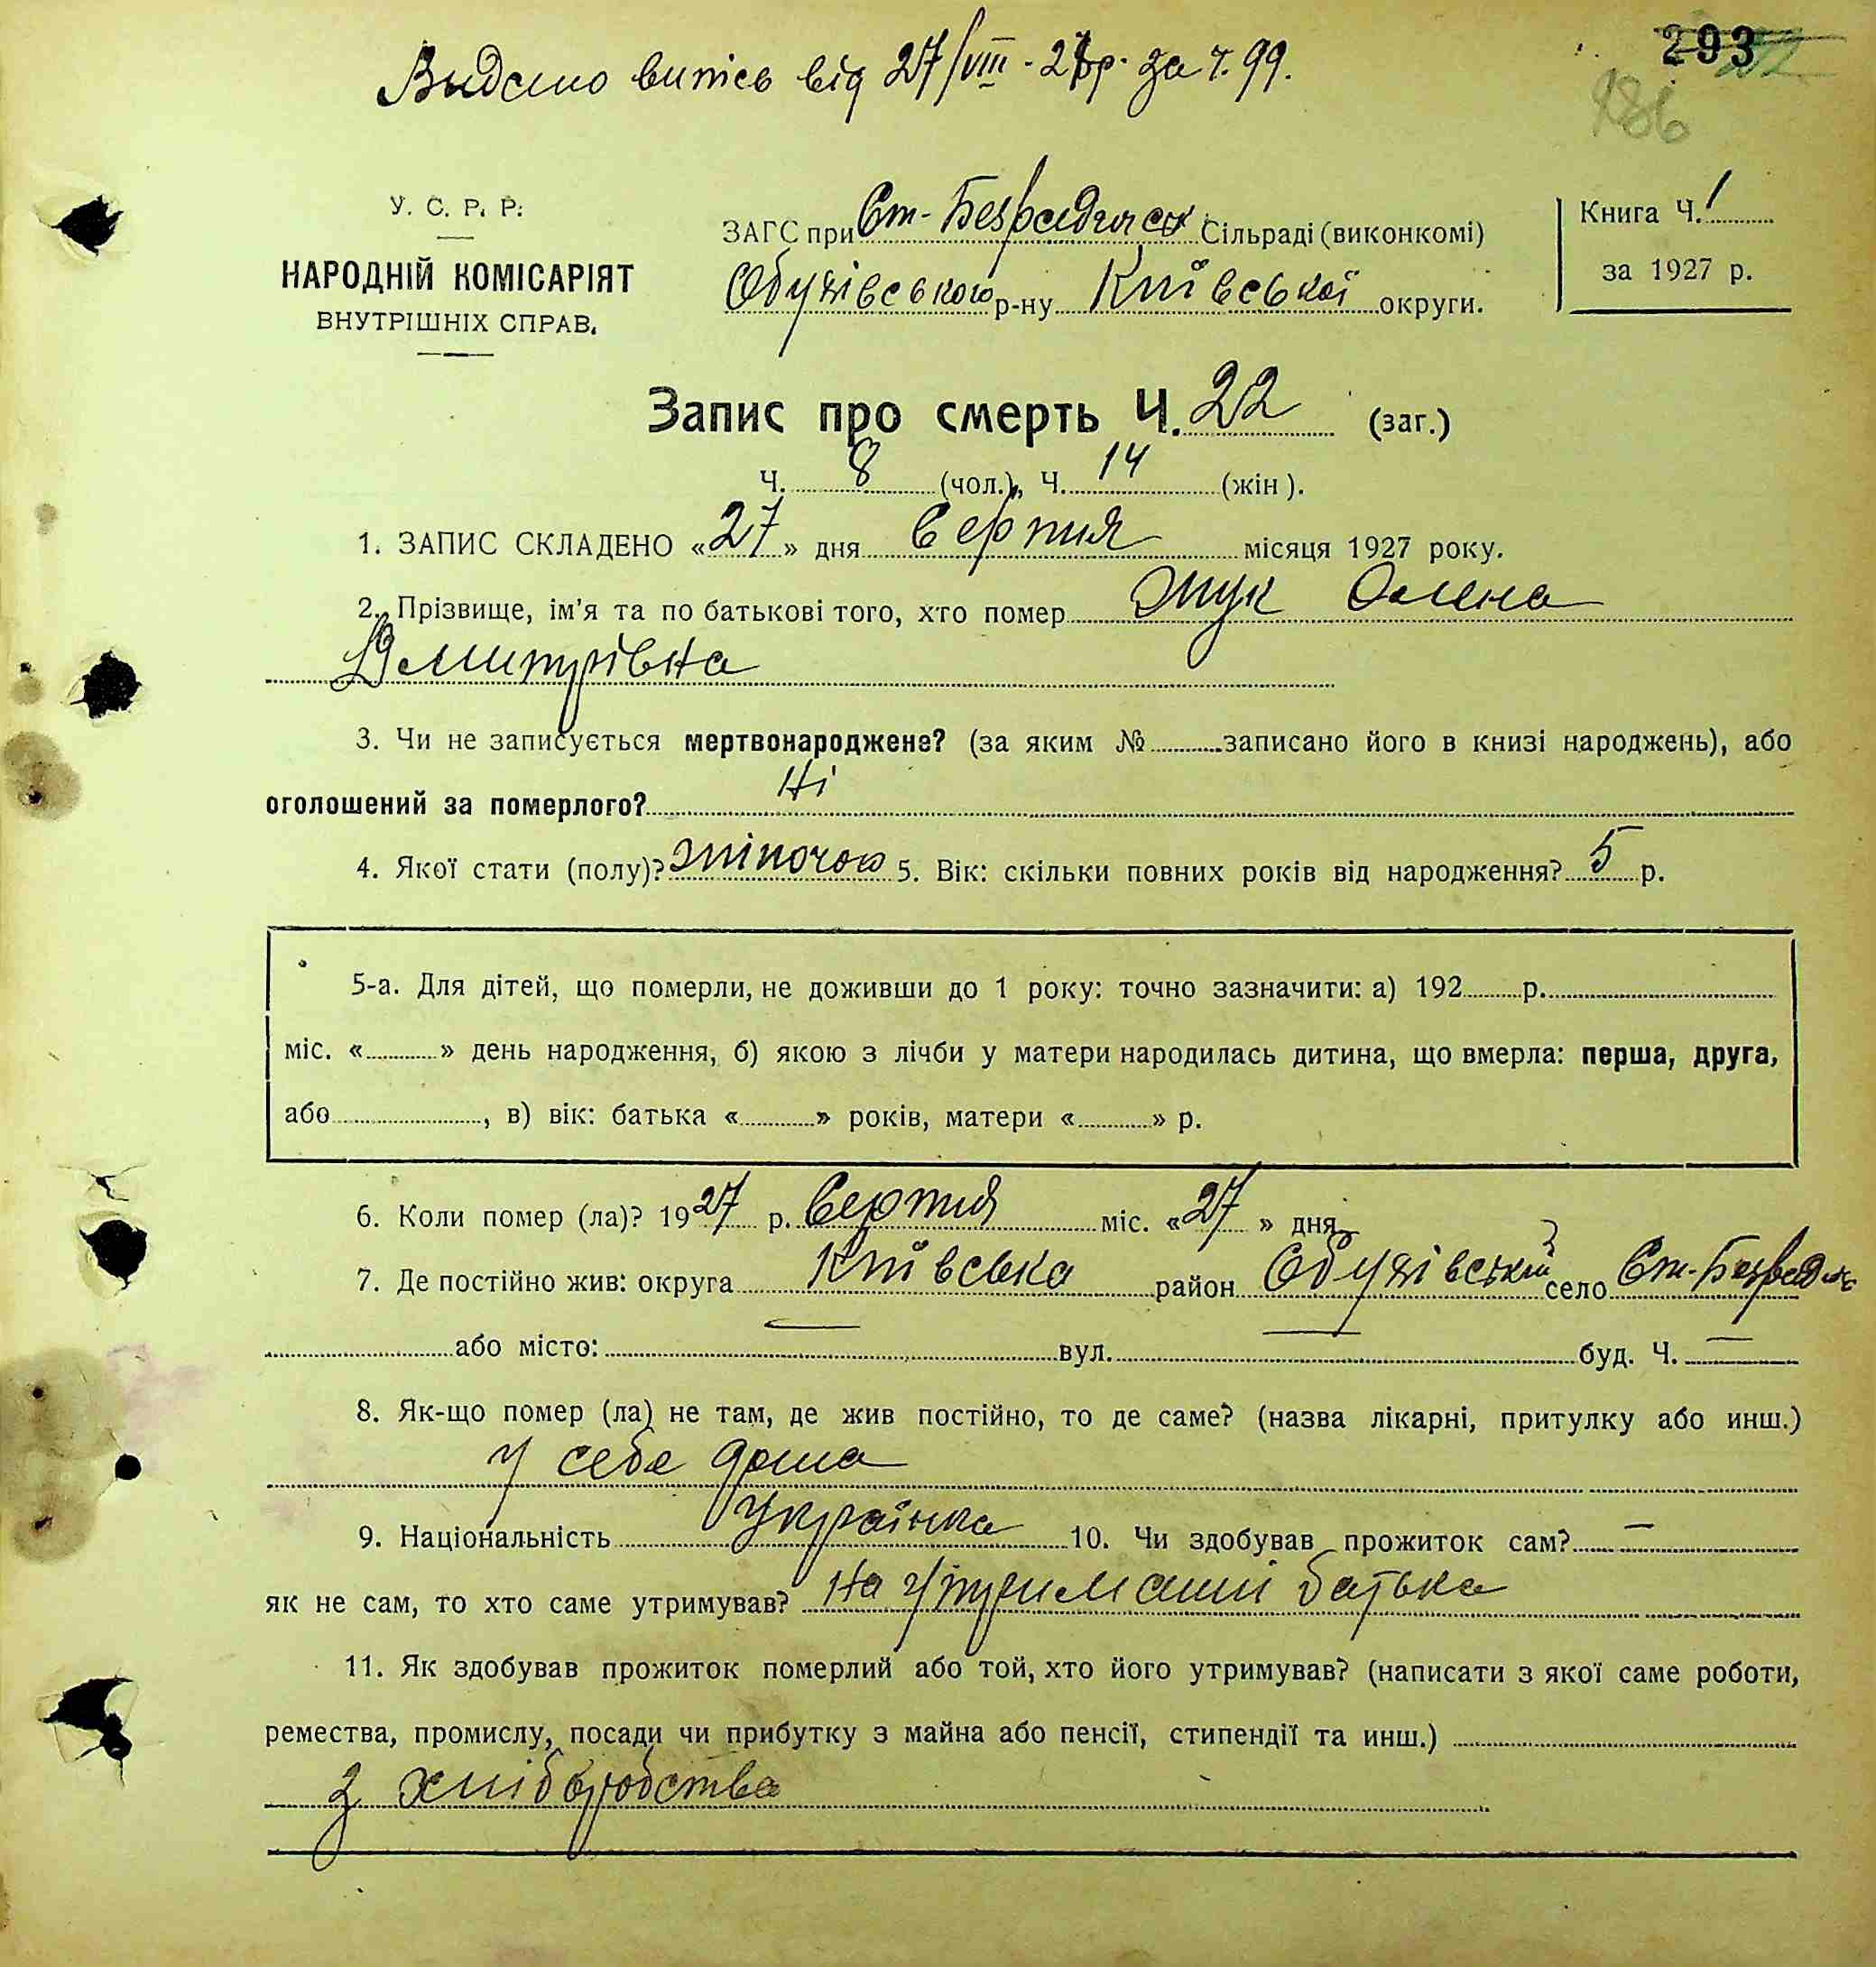 Видано витяг від 27/VIII-27р. за ч. 99.
293
186
У. С. Р. Р.
НАРОДНІЙ КОМІСАРІЯТ
ВНУТРІШНІХ СПРАВ.
ЗАГС при Ст-Безрадичеськ Сільраді (виконкомі)
Обухівського р-ну Київської округи.
Книга Ч. 1
за 1927 р.
Запис про смерть Ч. 22 (заг.)
Ч. 8 (чол.), Ч. 14 (жін).
1. ЗАПИС СКЛАДЕНО «27» дня серпня місяця 1927 року.
2. Прізвище, ім'я та по батькові того, хто помер Жук Олена
Демитрівна
3. Чи не записується мертвонароджене? (за яким № записано його в книзі народжень), або
оголошений за померлого? Ні
4. Якої стати (полу)? жіночою 5. Вік: скільки повних років від народження? 5 р.
5-а. Для дітей, що померли, не доживши до 1 року: точно зазначити: а) 192 р.
міс. « » день народження, б) якою з лічби у матери народилась дитина, що вмерла: перша, друга,
або , в) вік: батька « » років, матери « » р.
6. Коли помер (ла)? 1927 р. Серпня міс. «27» дня
7. Де постійно жив: округа Київська район Обухівський село Ст-Безрадич
або місто: — вул. — буд. Ч. —
8. Як-що помер (ла) не там, де жив постійно, то де саме? (назва лікарні, притулку або инш.)
у себе дома
9. Національність українка 10. Чи здобував прожиток сам? —
як не сам, то хто саме утримував? На утриманні батька
11. Як здобував прожиток померлий або той, хто його утримував? (написати з якої саме роботи,
ремества, промислу, посади чи прибутку з майна або пенсії, стипендії та инш.)
з хліборобства